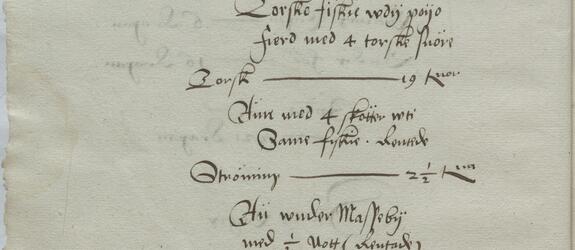 Torske fiskie wdÿ poÿo
fierd med 4 torske snöre
Torsk — 19 Knor
Åÿn med 4 skötter wti
Same fiskie . Rentede
Strömíng — 2 1/2 K
Åÿ wnder Masseby
med 1/2 Nott ( Rentade )